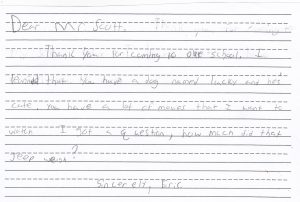 Dear Mr Scott.
Thank you for coming to our school. I
learned that you have a dog named lucky and he's
cute you have a lot of movies that I want to
watch I got a question, how much did that
Jeep weigh?
Sincerely, Eric